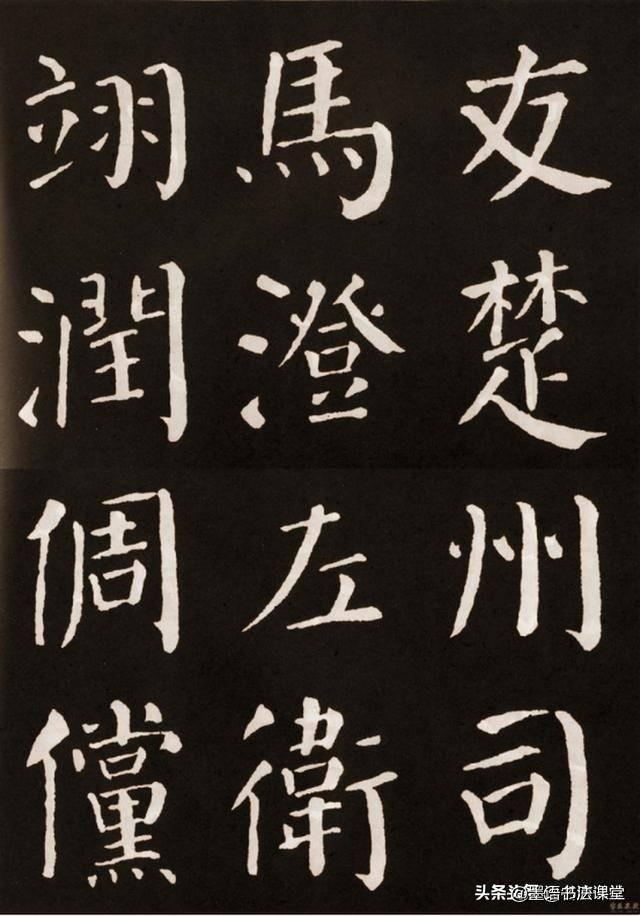 友楚州司
馬澄左衛
翊潤倜儻
头条 @墨语书法课堂